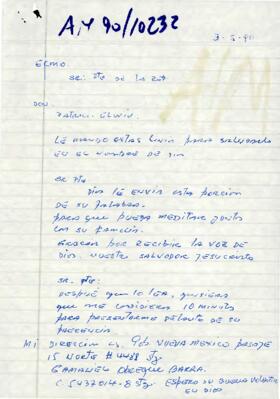 AM 90/10232
3-5-90
EXMO.
SR. Pte DE LA REP.
DON.
PATRICIO ELWIN.
LE MANDO ESTAS LINIA PARA SALUDARLO
EN EL NOMBRE DE DIO
SR. Pte
DIO LE ENVIA ESTA PORCION
DE SU PALABRA.
PARA QUE PUEDA MEDITAR JUNTO
CON SU FAMILIA.
GRACIA POR RECIBIR LA VOZ DE
DIO. NUESTRO SALVADOR JESUCRISTO
SR. Pte:
DESPUÉ QUE LO LEA, QUISIERA
QUE ME CONSIDIERA 10 MINUTO
PARA PRESENTARME DELANTE DE SU
PRECENCIA.
MI DIRECCIÓN ES, 9 de NUEVA MEXICO PASAJE
15 NORTE # 4488 Stg.
GAMANIEL OBREQUE BARRA.
C 5437014-8 Stg. ESPERO SU BUENA VOLUNTA
EN DIO